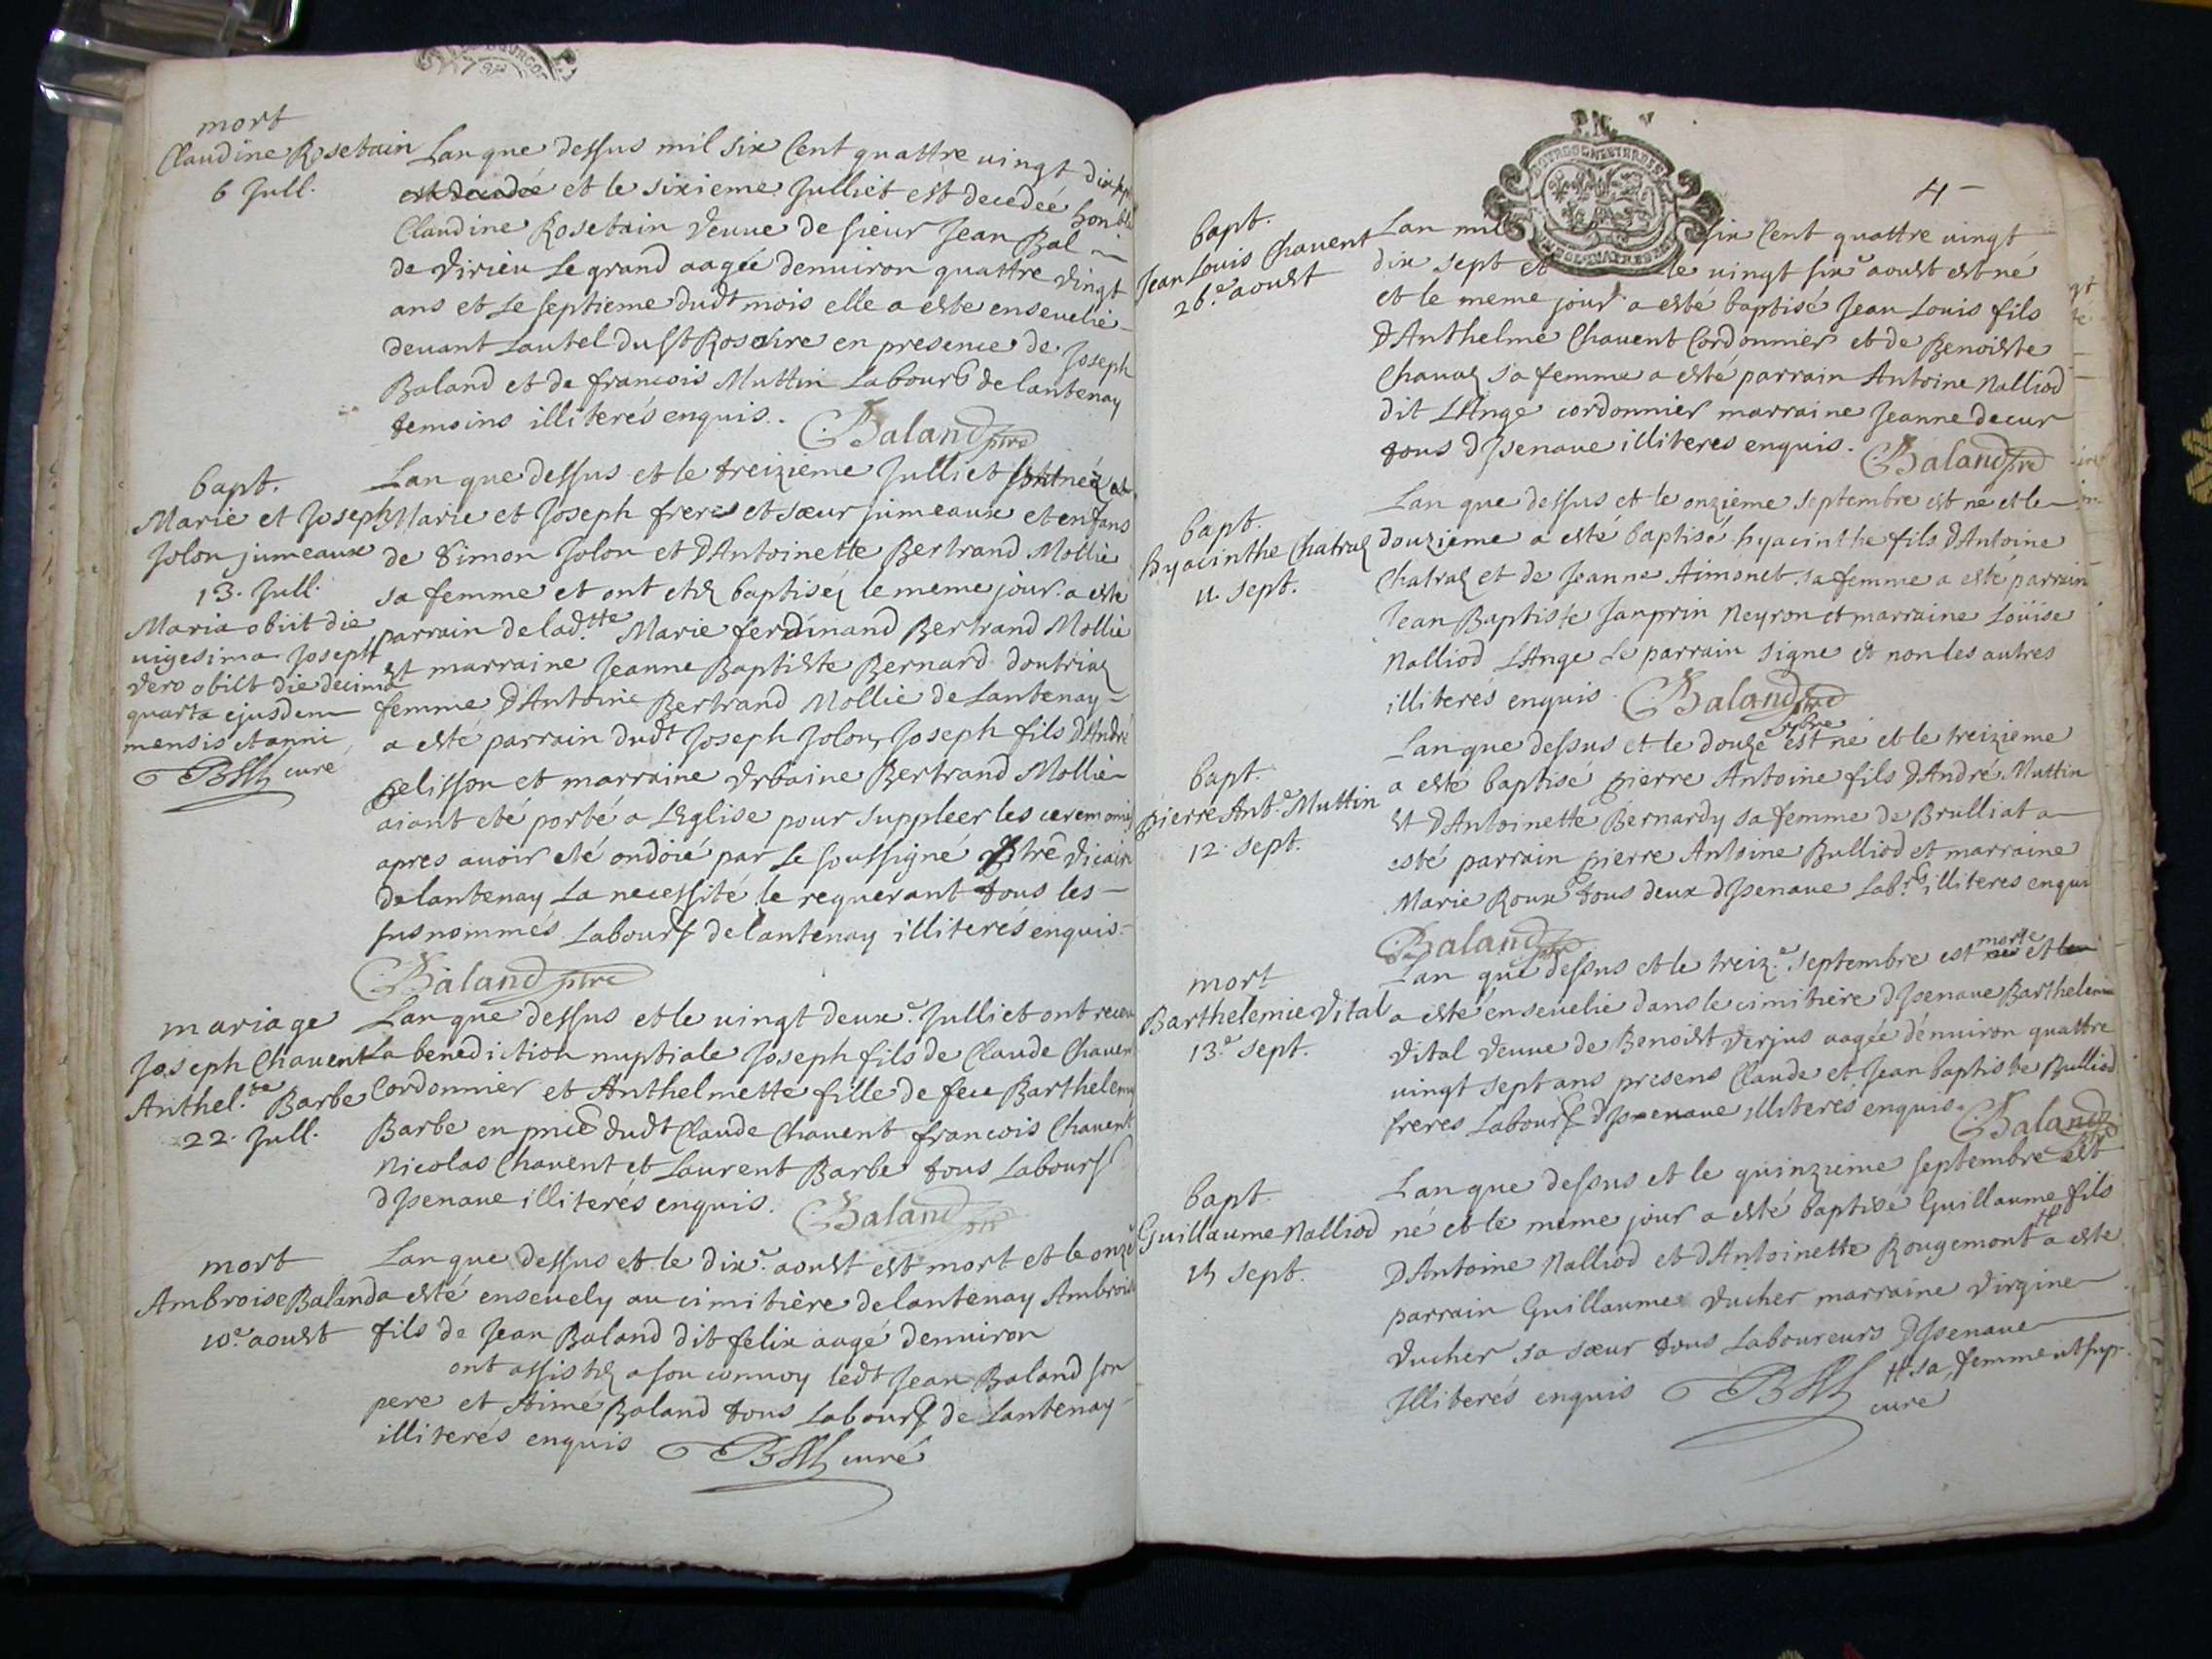 mort
Claudine Rosetain
6 Jull.
Lan que dessus mil six Cent quattre vingt dix sept
et le sixieme Julliet est decedée honble
Claudine Rosetain veuve de sieur Jean Bal
de Virieu Le grand aagée denuiron quattre vingt
ans et Le septieme dudt mois elle a este enseuelie
deuant Lautel du St Rosaire en presence de Joseph
Baland et de francois Muttin Labours de lantenay
temoins illiterés enquis.
Baland ptre
bapt.
Marie et Joseph
Jolon jumeaux
13. Jull.
Maria obiit die
uigesima Joseph
vero obiit die decima
quarta ejusdem
mensis et anni
curé
Lan que dessus et le treizieme Julliet sont nés et
Marie et Joseph freres et sœur jumeaux et enfans
de Simon Jolon et DAntoinette Bertrand Mollie
sa femme et ont etez baptisez le meme jour a este
parrain de lad.tte Marie ferdinand Bertrand Mollie
et marraine Jeanne Baptiste Bernard doutriaz
femme DAntoine Bertrand Mollie de Lantenay
a esté parrain dudt Joseph Jolon, Joseph fils DAndré
pelisson et marraine Vrbaine Bertrand Mollie
aiant eté porté a LEglise pour suppleer les ceremonies
apres auoir eté ondoié par Le soussigné ptre Vicaire
de lantenay La necessité le requerant tous les
susnommés Labours de lantenay illiterés enquis.
Baland ptre
mariage
Joseph Chauent
Anthel.te Barbe
22. Jull.
Lan que dessus et le uingt deux.e Julliet ont receu
La benediction nuptiale Joseph fils de Claude Chauent
Cordonnier et Anthelmette fille de feu Barthelemy
Barbe en pnce dudt Claude Chauent francois Chauent
Nicolas Chauent et Laurent Barbe tous Labours
dJsenaue illiterés enquis.
Baland ptre
mort
Ambroise Baland
10.e aoust
Lan que dessus et le dix.e aoust est mort et le onze
a esté enseuely au cimitière de lantenay Ambroise
fils de Jean Baland dit felix aagé denuiron
ont assistez a son conuoy ledt Jean Baland son
pere et Aimé Baland tous Labours de Lantenay
illiterés enquis
curé
4
bapt.
Jean Louis Chauent
26.e aoust
Lan mil six Cent quattre uingt
dix sept et le uingt six.e aoust est né
et le meme jour a esté baptisé Jean Louis fils
DAnthelme Chauent Cordonnier et de Benoiste
Chauaz sa femme a esté parrain Antoine Nalliod
dit LAnge cordonnier marraine Jeanne decur
tous dJsenaue illiteres enquis.
Baland ptre
bapt.
hyacinthe Chatraz
11. sept.
Lan que dessus et le onzieme septembre est né et le
douzieme a esté baptisé hyacinthe fils DAntoine
Chatraz et de Jeanne Aimonet sa femme a esté parrain
Jean Baptiste Janprin Neyron et marraine Loüise
Nalliod LAnge Le parrain signe et non les autres
illiterés enquis.
Baland ptre
bapt.
pierre Ant.e Muttin
12. sept.
Lan que dessus et le douze 7bre est né et le treizieme
a esté baptisé pierre Antoine fils DAndré Muttin
et DAntoinette Bernardy sa femme de Brulliat a
esté parrain pierre Antoine Bulliod et marraine
Marie Roux tous deux dJsenaue Lab.rs illiteres enquis
Baland ptre
mort
Barthelemie Vital
13.e sept.
Lan que dessus et le treiz.e septembre est morte et
a esté enseuelie dans le cimitière dJsenaue Barthelemie
Vital veuue de Benoist Verjus aagée denuiron quattre
uingt sept ans presens Claude et Jean baptiste Bulliod
freres Labours dJsenaue illiterés enquis.
Baland
bapt.
Guillaume Nalliod
15 sept.
Lan que dessus et le quinzieme septembre est
né et le meme jour a esté baptisé Guillaume fils
DAntoine Nalliod et dAntoinette Rougemont # a este
parrain Guillaume Vucher marraine Virgine
Vucher sa sœur tous Laboureurs dJsenaue
# sa femme ut sup.
Jlliterés enquis
curé